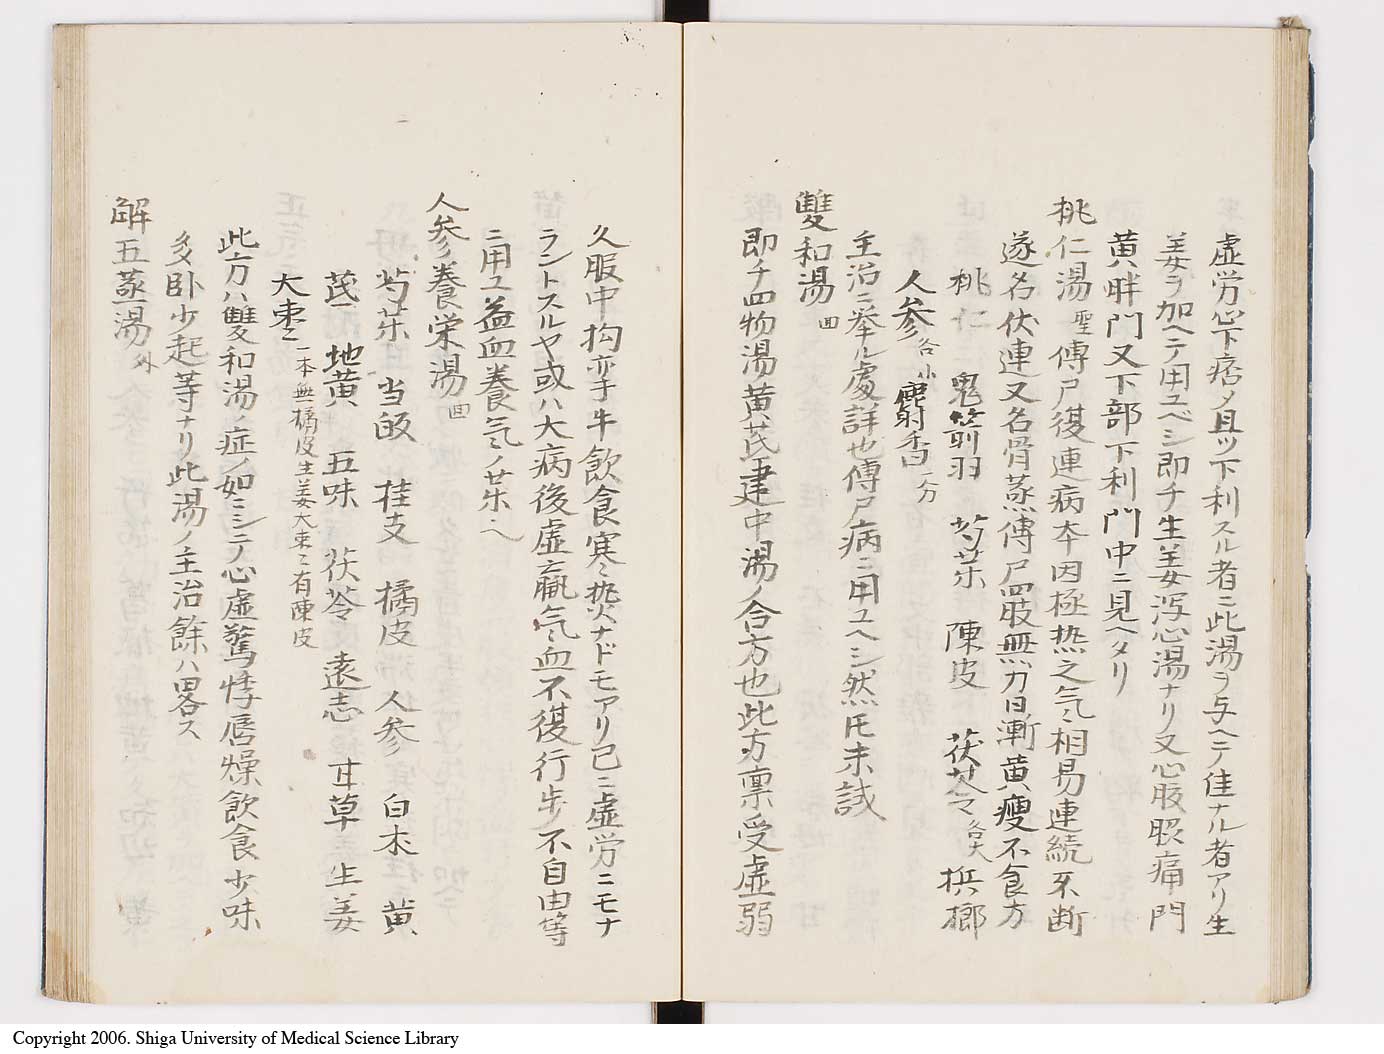 虚労心下痞メ且ツ下利スル者ニ此湯ヲ与ヘテ佳ナル者アリ生
姜ヲ加ヘテ用ユベシ即チ生姜瀉心湯ナリ又心腹脹痛門
黄胖門又下部下利門中ニ見ヘタリ
桃仁湯 聖 傳尸復連病本因極热之气相易連続不断
遂名伏連又名骨蒸傳尸四肢無力日漸黄瘦不食方
桃仁 鬼箭羽 芍薬 陳皮 茯苓 各大 梹榔
人参 各小 麝香 一分
主治ニ挙ル處詳也傳尸病ニ用ユヘシ然𪜈未試
雙和湯 回
即チ四物湯黄芪建中湯ノ合方也此方禀受虚弱
久服中拘孿牛飲食寒热ナドモアリ已ニ虚労ニモナ
ラントスルヤ或ハ大病後虚羸气血不復行歩不自由等
ニ用ユ益血養气ノ薬ヘ
人参養栄湯 回
芍薬 当皈 桂支 橘皮 人参 白朮 黄
芪 地黄 五味 茯苓 遠志 甘草 生姜
大棗 一本無橘皮生姜大棗ニ有陳皮
此方ハ雙和湯ノ症ノ如ニシテ心虚驚悸唇燥飲食少味
多卧少起等ナリ此湯ノ主治餘ハ畧ス
解五蒸湯 外
Copyright 2006. Shiga University of Medical Science Library